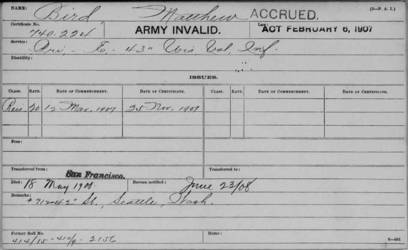 NAME: Bird Matthew ACCRUED. (3—P. A. I.)
Certificate No. 740.224 ARMY INVALID. Law: ACT FEBRUARY 6, 1907
Service: Pri, E, 43" Wis Vol, Inf.
Disability:
ISSUES.
CLASS. RATE. DATE OF COMMENCEMENT. DATE OF CERTIFICATE. CLASS. RATE. DATE OF COMMENCEMENT. DATE OF CERTIFICATE.
20 12 Mar. 1907 25 Nov. 1907
Fees:
Transferred from San Francisco. Transferred to:
Died: 18 May 1908 Bureau notified: June 23/08
Remarks: St, Seattle, Wash.
Former Roll No. Home: